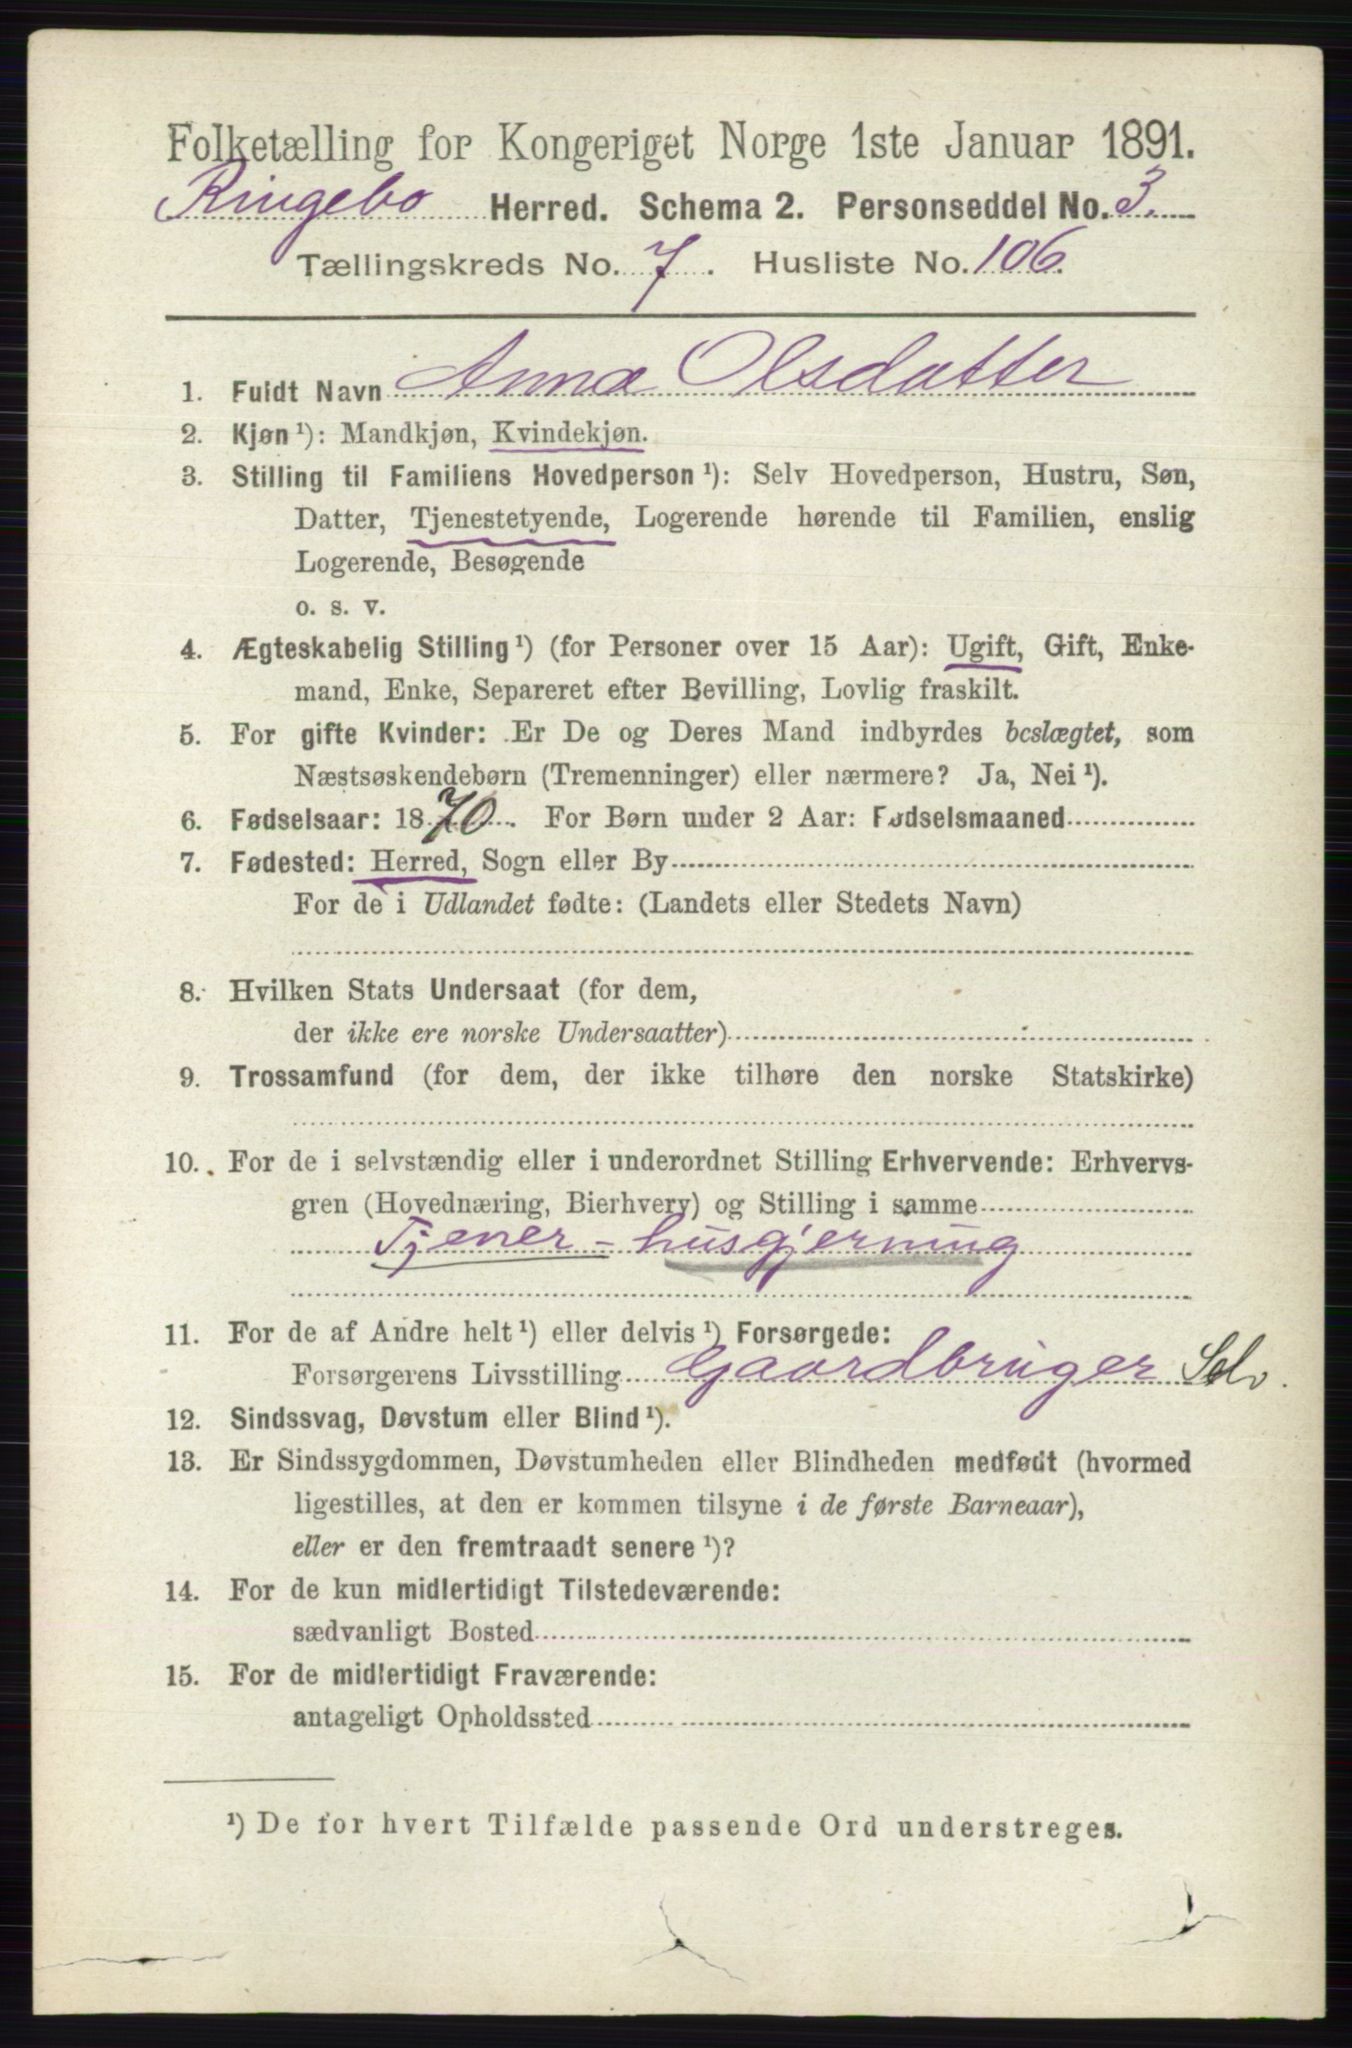 Folketælling for Kongeriget Norge 1ste Januar 1891.
Ringebo Herred. Schema 2. Personseddel No. 3.
Tællingskreds No. 7. Husliste No. 106.
1. Fuldt Navn Anna Olsdatter
2. Kjøn ¹): Mandkjøn, Kvindekjøn.
3. Stilling til Familiens Hovedperson ¹): Selv Hovedperson, Hustru, Søn,
Datter, Tjenestetyende, Logerende hørende til Familien, enslig
Logerende, Besøgende
o. s. v.
4. Ægteskabelig Stilling ¹) (for Personer over 15 Aar): Ugift, Gift, Enke-
mand, Enke, Separeret efter Bevilling, Lovlig fraskilt.
5. For gifte Kvinder: Er De og Deres Mand indbyrdes beslægtet, som
Næstsøskendebørn (Tremenninger) eller nærmere? Ja, Nei ¹).
6. Fødselsaar: 1870. For Børn under 2 Aar: Fødselsmaaned
7. Fødested: Herred, Sogn eller By
For de i Udlandet fødte: (Landets eller Stedets Navn)
8. Hvilken Stats Undersaat (for dem,
der ikke ere norske Undersaatter)
9. Trossamfund (for dem, der ikke tilhøre den norske Statskirke)
10. For de i selvstændig eller i underordnet Stilling Erhvervende: Erhvervs-
gren (Hovednæring, Bierhverv) og Stilling i samme
Tjener - husgjerning
11. For de af Andre helt ¹) eller delvis ¹) Forsørgede:
Forsørgerens Livsstilling Gaardbruger Selv.
12. Sindssvag, Døvstum eller Blind ¹).
13. Er Sindssygdommen, Døvstumheden eller Blindheden medfødt (hvormed
ligestilles, at den er kommen tilsyne i de første Barneaar),
eller er den fremtraadt senere ¹)?
14. For de kun midlertidigt Tilstedeværende:
sædvanligt Bosted
15. For de midlertidigt Fraværende:
antageligt Opholdssted
¹) De for hvert Tilfælde passende Ord understreges.